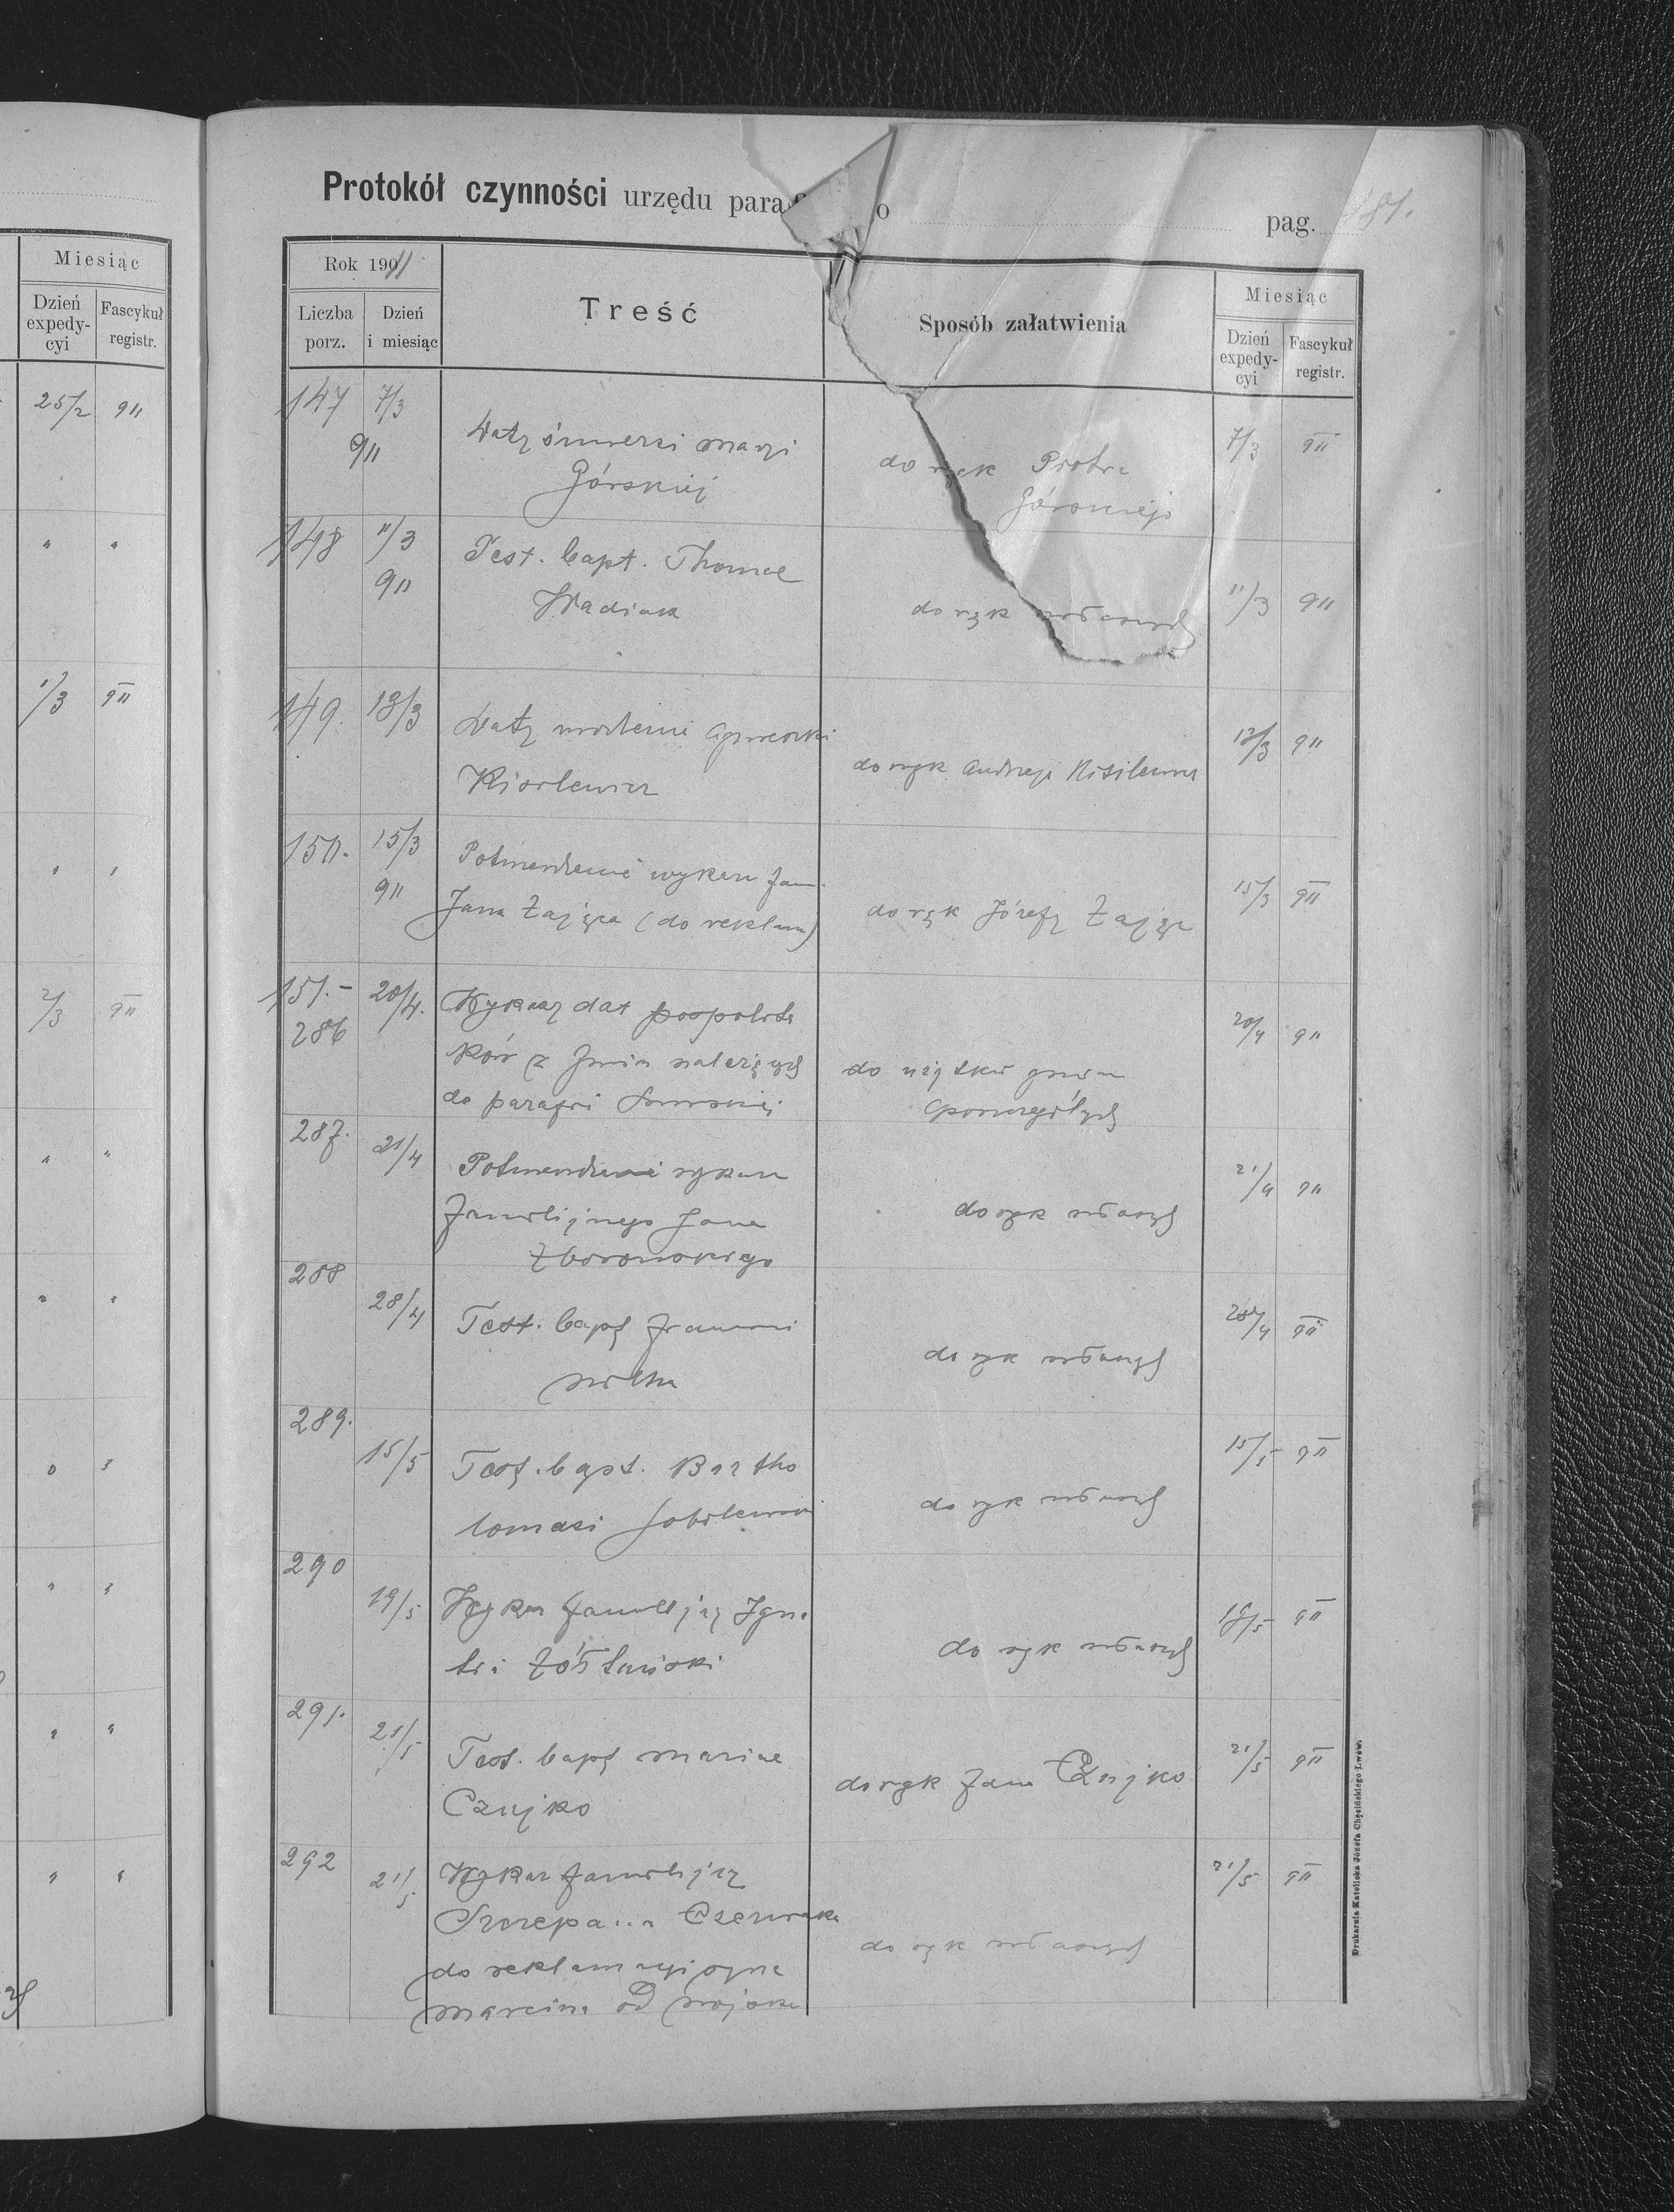 Miesiąc
Dzień expedy-cyi
Fascykuł registr.
25/2 911
" "
1/3 911
" "
2/3 911
" "
" "
" "
" "
" "
Protokół czynności urzędu para o pag.
Rok 1911
Liczba porz.
Dzień i miesiąc
Treść
Sposób załatwienia
Miesiąc
Dzień expedy-cyi
Fascykuł registr.
147 7/3 911
Daty śmierci Maryi
Górskiej
do rąk Piotra
Górskiego
7/3 911
148 11/3 911
Test. bapt. Thomae
Wadiak
do rąk własnych
11/3 911
149. 13/3
Daty urodzenia Agnieszki
do rąk Andrzeja
13/3 911
150. 15/3 911
Potwierdzenie wykazu fam.
Jana Zająca (do reklam)
do rąk Józefy Zając
15/3 911
151.-
286 20/4.
Wykazy dat pospolita
ków z gmin należących
do parafii
do użytku gmin
poszczególnych
20/4 911
287. 21/4
Potwierdzenie wykazu
familijnego Jana
Zborowskiego
do rąk własnych
21/4 911
288 28/4
Test. bapt Francisci
do rąk własnych
28/4 911
289. 15/5
Test. bapt. Bartho
lomaei
do rąk własnych
15/5 911
290 19/5
Wykaz familijny Igna
do rąk własnych
19/5 911
291. 21/5
Test. bapt Mariae
Czujko
do rąk Jana Czujko
21/5 911
292 21/5
Wykaz familijny
Szczepana Czerwaka
do reklamacyi syna
Marcina od wojska
do rąk własnych
21/5 911
Drukarnia Katolicka Józefa Chęcińskiego Lwów.